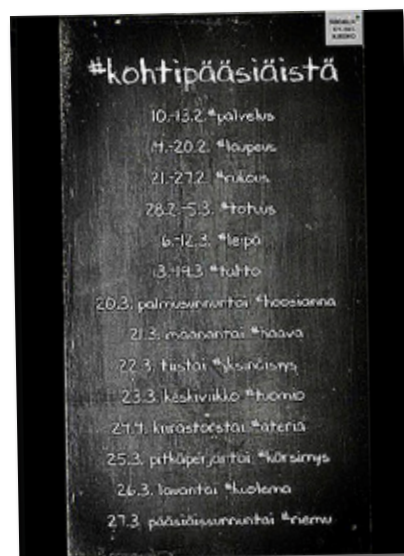 #kohtipääsiäistä
10.-13.2. #palvelus
14.-20.2. #laupeus
21.-27.2. #rukous
28.2.-5.3. #totuus
6.-12.3. #leipä
13.-19.3 #tahto
20.3. palmusunnuntai #hoosianna
21.3. maanantai #haava
22.3. tiistai #yksinäisyys
23.3. keskiviikko #tuomio
24.4. kiirastorstai #ateria
25.3. pitkäperjantai #kärsimys
26.3. lauantai #kuolema
27.3. pääsiäissunnuntai #riemu